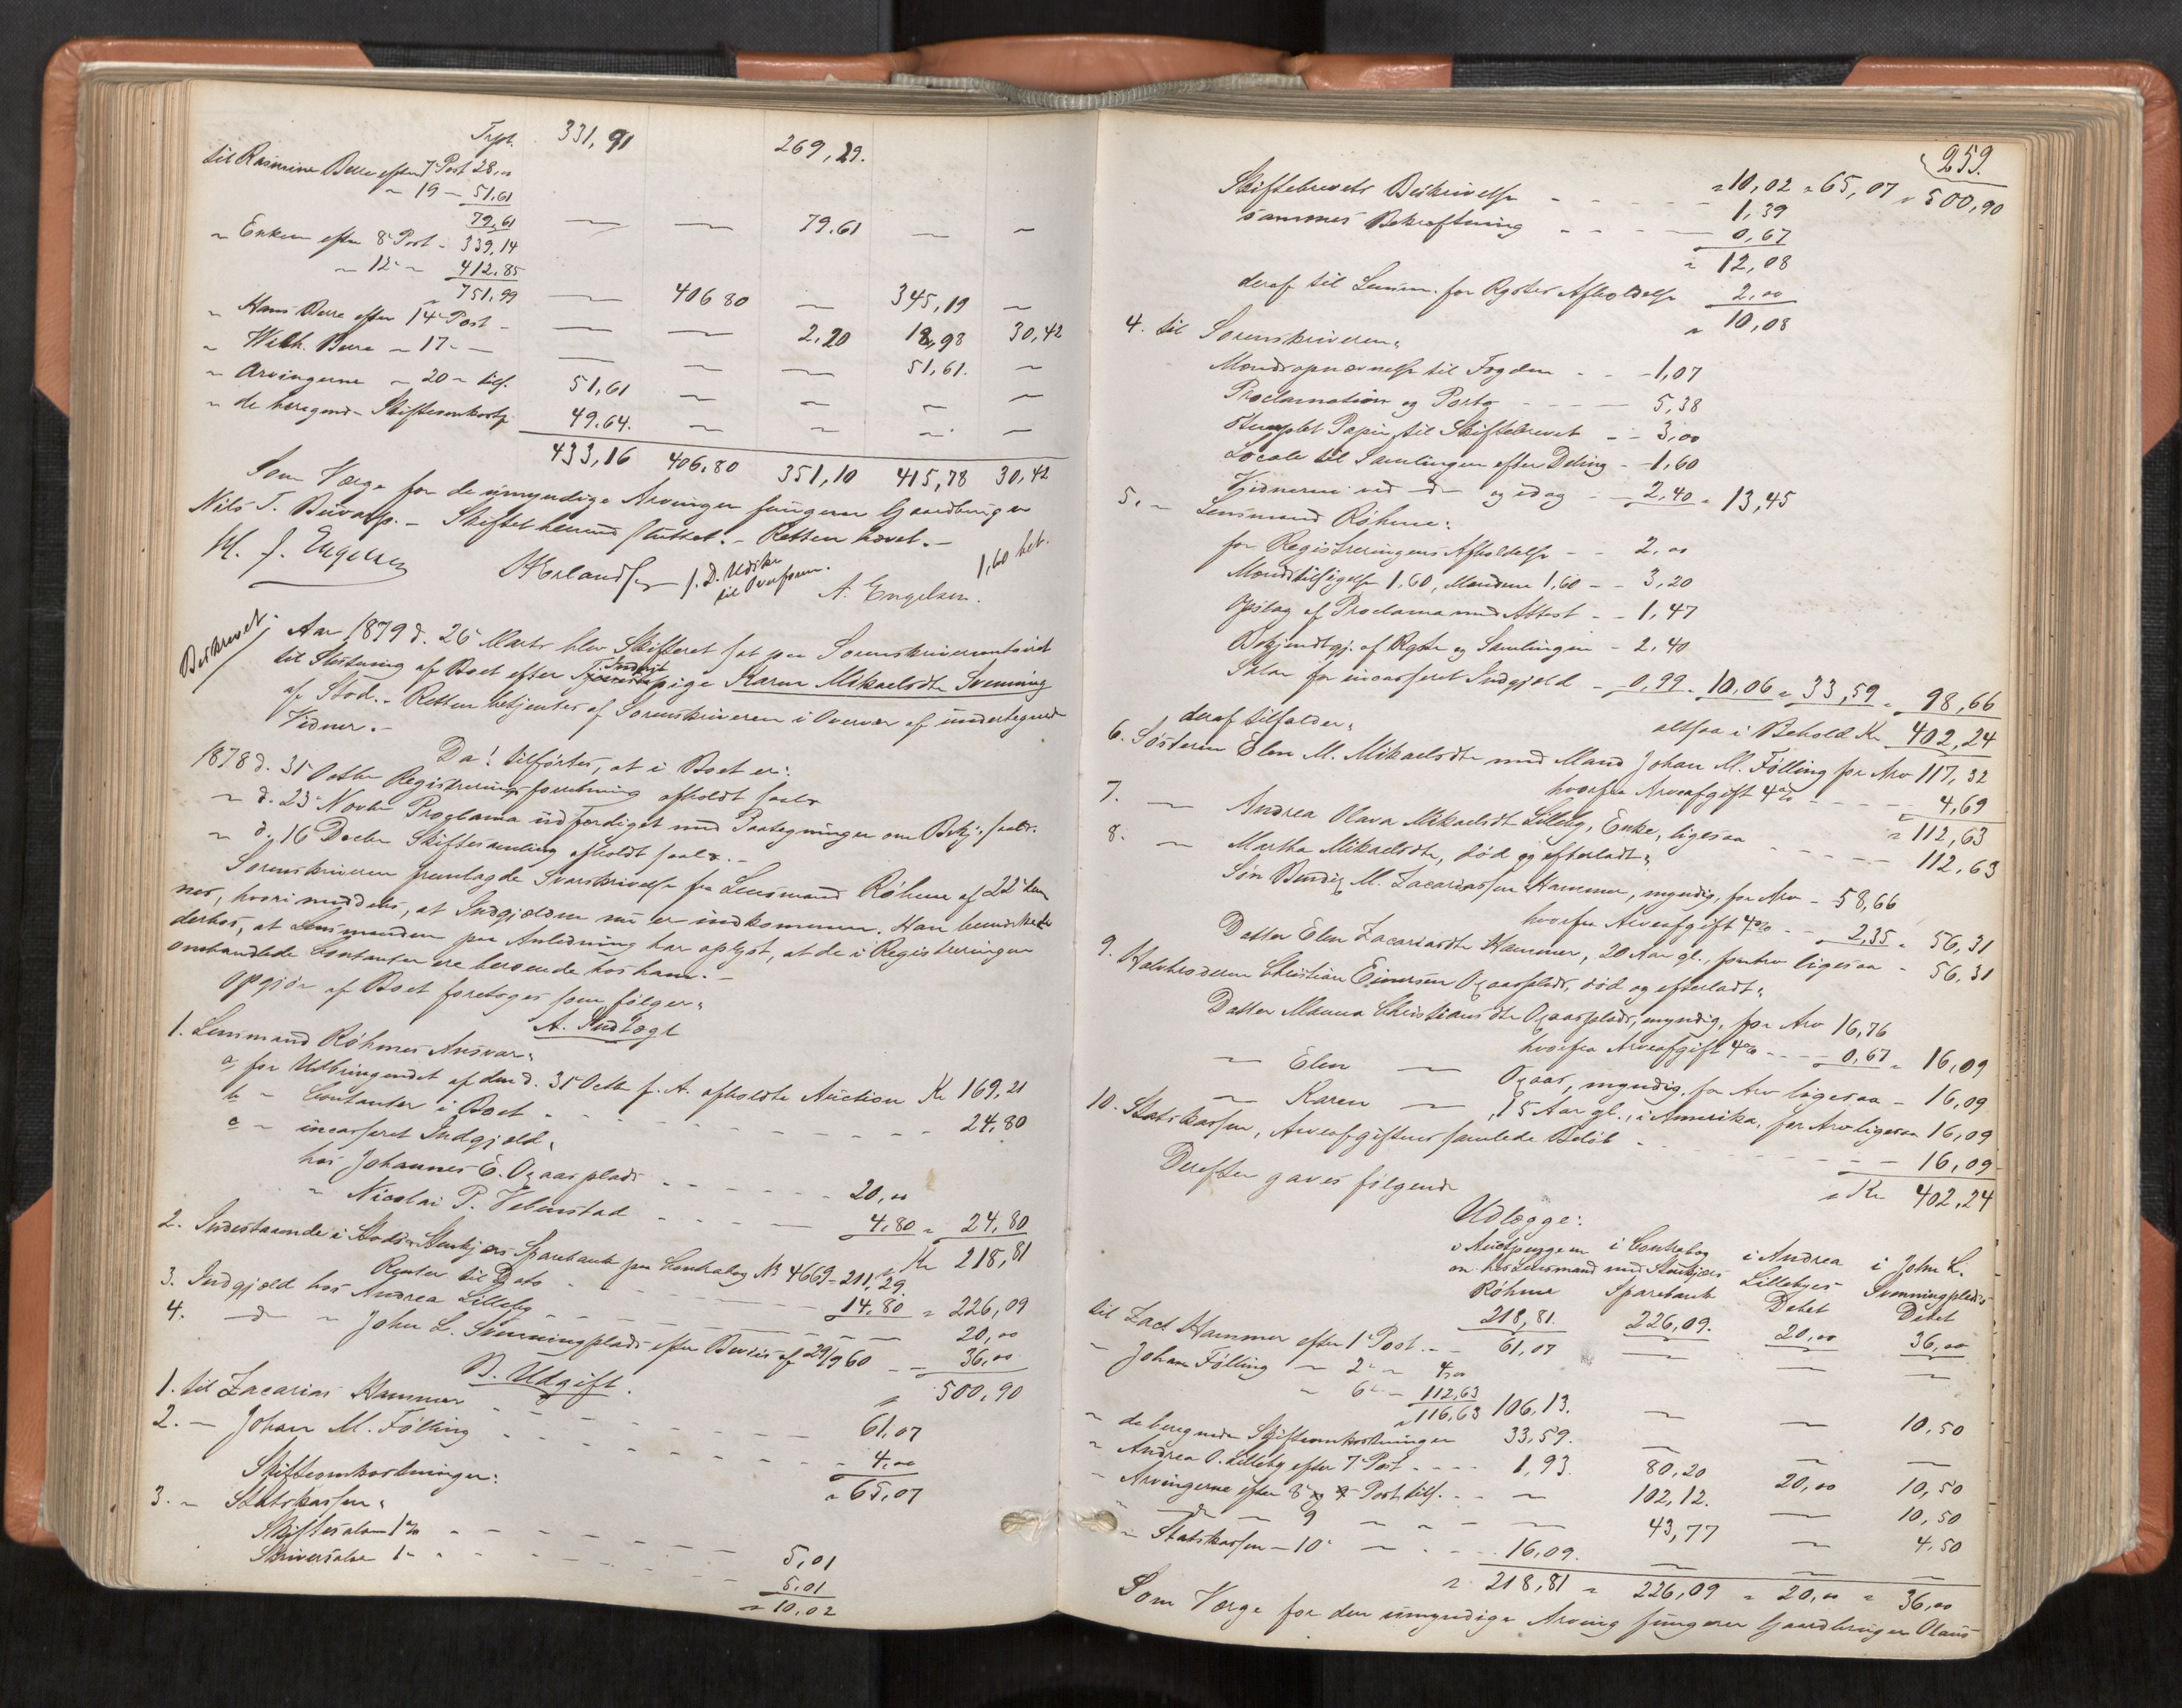 Trpt. 331,91 269,29.
til Rasmine Berre efter 7 Post 28,00
" 19 - 51,61
79,61 — — 79.61 — —
" Enken efter 8 Post - 339,14
" 12 " 412,85
751,99 — 406 80 — 345,19 —
" Hans Berre efter 14 Post - — — 2,20 18,98 30,42
" Wilh. Berre - 17 - — — — 51,61. —
" Arvingerne - 20 - tils. 51,61 — — — —
" de beregnede Skifteomkostn. 49.64. — — — —
433,16 406,80 351,10 415,78 30,42
Som Værge for de umyndige Arvinger fungerer Gaardbruger
Nils T. Buvarp. - Skiftet hermed sluttet. - Retten hævet. -
M. J. Engelsen
A. Engelsen.
1,60 bet.
Beskrevet.
Aar 1879 d. 26 Marts blev Skifteret sat paa Sorenskrivercontoiret
til Slutning af Boet efter Inderst pige Karen Mikaelsdtr Svenning
af Stod. - Retten betjentes af Sorenskriveren i Overvær af undertegnede
Vidner. -
Da! tilførtes, at i Boet er:
1878 d. 31 Octbr Registreringsforretning afholdt saal.
" d. 23 Novbr Proclama udfærdiget med Paategninger om Bekj. saal.
" d. 16 Decbr Skiftesamling afholdt saal. -
Sorenskriveren fremlagde Svarskrivelse fra Lensmand Röhme af 22 den
nes, hvori meddeles, at Indgjælden nu er indkommen. Han bemærkede
derhos, at Lensmanden paa Anledning har oplyst, at de i Registreringen
omhandlede Contanter ere beroende hos ham. -
Opgjör af Boet foretoges som følger:
A. Indtægt
1. Lensmand Röhmes Ansvar:
a, for Udbringendet af den d. 31 Octbr f. A. afholdte Auction Kr 169,21
b " Contanter i Boet - - - 24,80
c " incasseret Indgjæld:
hos Johannes E. Ogaasplads - - - 20,00
" Nicolai P. Vebenstad - - - 4,80 " 24,80
Kr 218,81
2. Indestaaende i Stods & Stenkjærs Sparebank paa Contrabog No 4669 - 211,29
Renter til Dato - - - 14,80 " 226,09
3. Indgjæld hos Andrea Lilleby - - - 20,00
4. — d — " John L. Svenningplads efter Bevis af 29/9 60 - - 36,00
" 500,90
B. Udgift.
1. til Zacarias Hammer - - - 61,07
2. — Johan M. Følling - - - 4,00
" 65,07
Skifteomkostninger:
3. " Statskassen:
Skiftesalær 1% - - - 5,01
Skriversalær 1 " - - - 5,01
" 10,02
259.
" 10,02 " 65,07 " 500,90
Skiftebrevets Beskrivelse - - - 1,39
sammes Bekræftning - - - 0,67
" 12,08
deraf til Lensm. for Rgstrs Afholdelse 2,00
" 10,08
4. til Sorenskriveren:
Mændsopnævnelse til Fogden - - 1,07
Proclamation og Porto - - - 5,38
Stemplet Papir til Skiftebrevet - - 3,00
Locale til Samlingen efter Deling - 1,60
Vidnerne ved — d — og idag - - 2,40 " 13,45
5. " Lensmand Röhme:
for Registreringens Afholdelse - - 2,00
Mændstilsigelse 1,60, Mændene 1,60 - - 3,20
Opslag af Proclama med Attest - - 1,47
Bekjendtgj. af Rgstr og Samlingen - 2,40
Salær for incasseret Indgjæld - 0,99 " 10,06 " 33,59 " 98,66
altsaa i Behold Kr 402,24
deraf tilfalder:
6. Søsteren Elen M. Mikaelsdtr med Mand Johan M. Følling for Arv 117,32
hvorfra Arveafgift 4% - - - 4,69
" 112,63
7. — Andrea Olava Mikaelsdtr Lilleby, Enke, ligesaa - - - 112,63
8. — Martha Mikaelsdtr, død og efterladt:
Søn Bendig M. Zacariassen Hammer, myndig, for Arv - 58,66
hvorfra Arveafgift 4% - - 2,35 " 56,31
Datter Elen Zacariasdtr Hammer, 20 Aar gl., for Arv ligesaa - 56,31
9. Halvbroderen Christian Einersen Ogaasplads, død og efterladt:
Datter Maria Christiansdtr Ogaasplads, myndig, for Arv 16,76
hvorfra Arveafgift 4% - - - 0,67 " 16,09
— Elen — Ogaas, myndig, for Arv ligesaa - 16,09
— Karen — , 15 Aar gl., i Amerika, for Arv ligesaa 16,09
10. Statskassen, Arveafgifternes samlede Beløb - - - 16,09
" Kr 402,24
Derefter gaves følgende
Udlægge:
i Auctpengene hos Lensmand Röhme
i Contrabog med Stenkjærs Sparebank
i Andrea Lillebyes Debet
i John L. Svenningplads Debet
218,81. 226,09. 20,00 36,00
til Zach Hammer efter 1 Post - - 61,07 — — —
" Johan Følling " 2 " 4,00
" 6 " 112,63
" 116,63 106,13. — — 10,50
" de beregnede Skifteomkostninger 33,59. — — —
" Andrea O. Lilleby efter 7 Post - - - 1,93. 80,20 20,00 10,50
" Arvingerne efter 8 Post tils. - - — 102,12. — 10,50
" — d — 9 — — 43,77 — 4,50
" Statskassen - 10 — - - 16,09. — — —
" 218,81 " 226,09 " 20,00 " 36,00
Som Værge for den umyndige Arving fungerer Gaardbruger Olaus